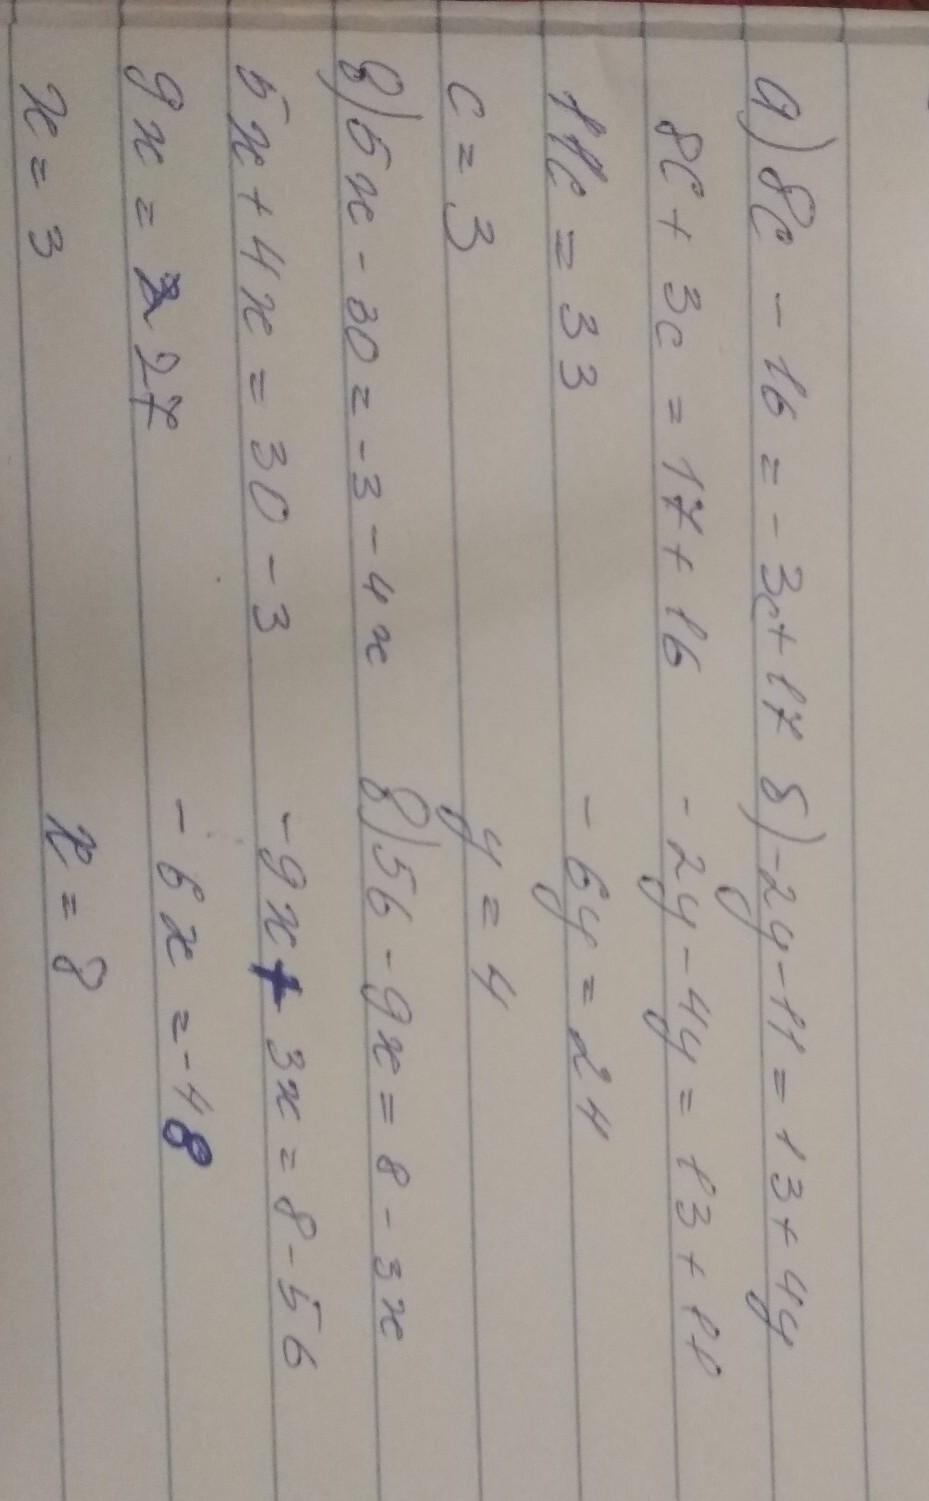 а) 8c - 16 = - 3c + 17
8c + 3c = 17 + 16
11c = 33
c = 3
б) -2y - 11 = 13 + 4y
- 2y - 4y = 13 + 11
- 6y = 24
y = 4
в) 5x - 30 = -3 - 4x
5x + 4x = 30 - 3
9x = 27
x = 3
в) 56 - 9x = 8 - 3x
-9x + 3x = 8 - 56
- 6x = -48
x = 8